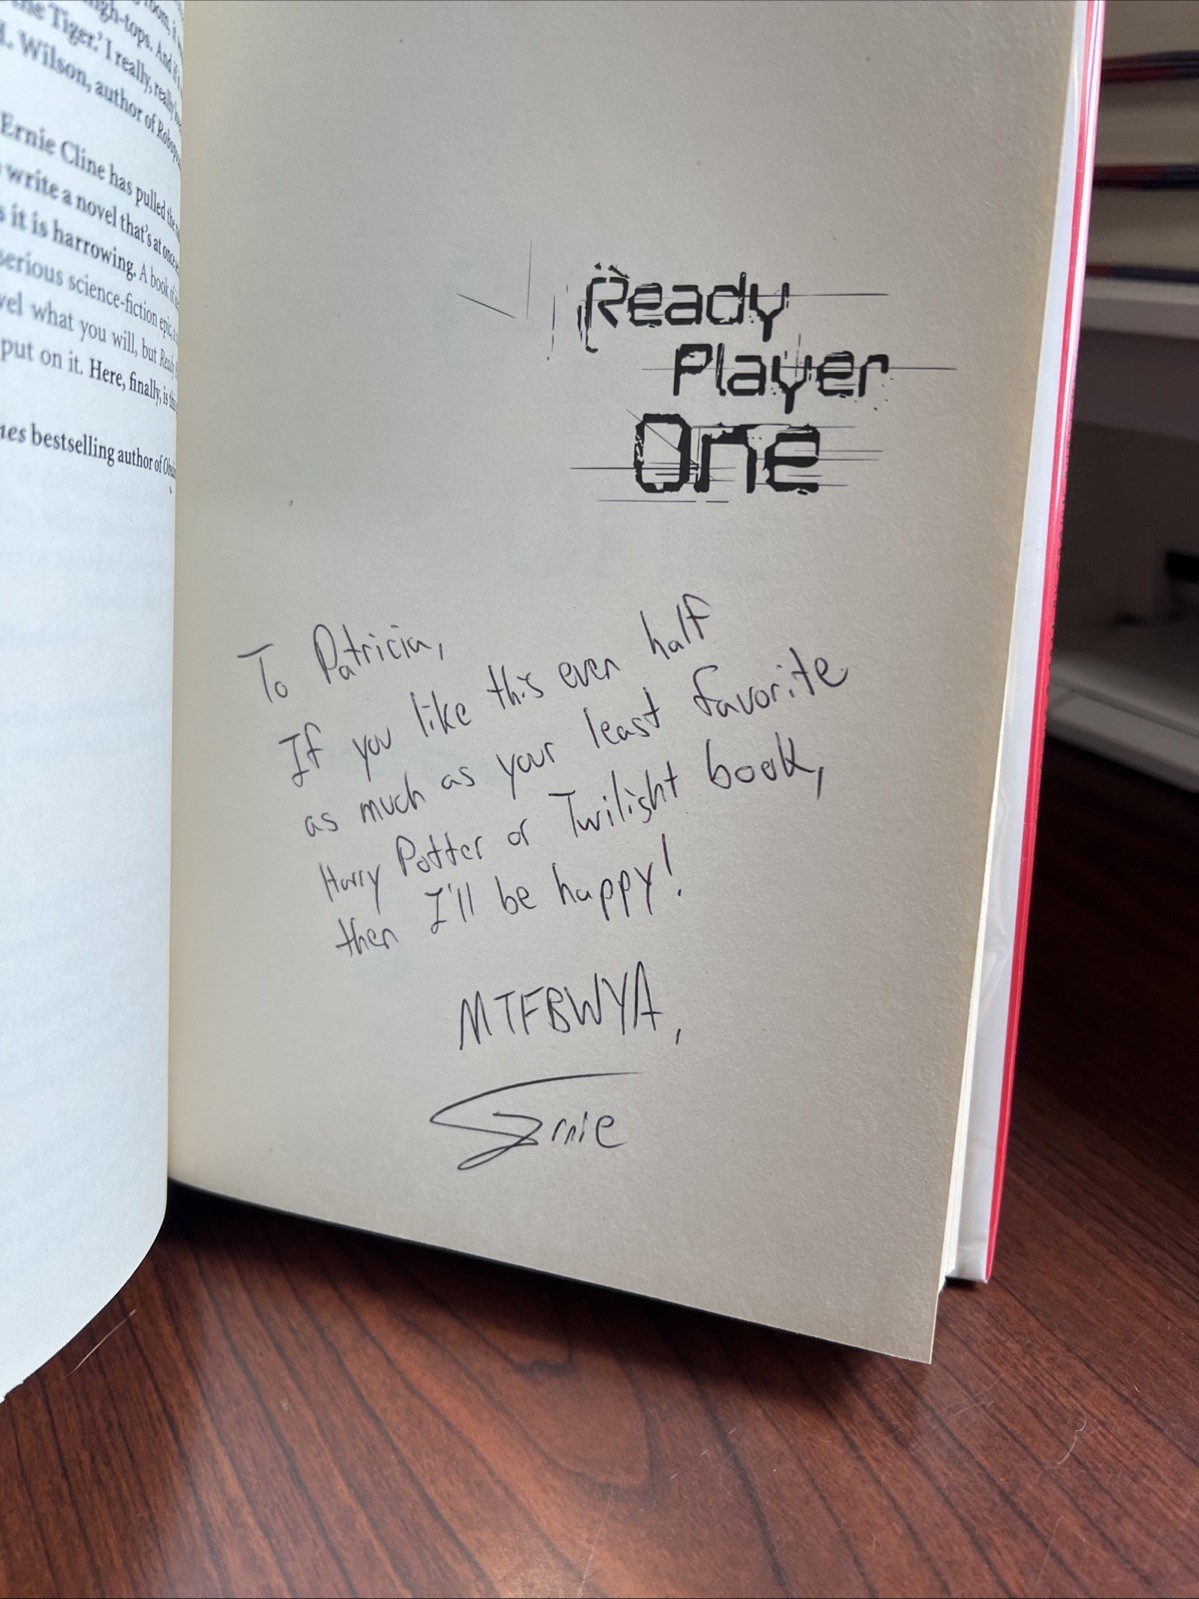 room,
high-tops. And
the Tiger.' I really, really
Wilson, author of
Ernie Cline has pulled the
write a novel that's at once
it is harrowing. A book of
serious science-fiction epic,
what you will, but Ready
put on it. Here, finally, is
bestselling author of
Ready
Player
One
To Patricia,
If you like this even half
as much as your least favorite
Harry Potter or Twilight book,
then I'll be happy!
MTFBWYA,
Ernie